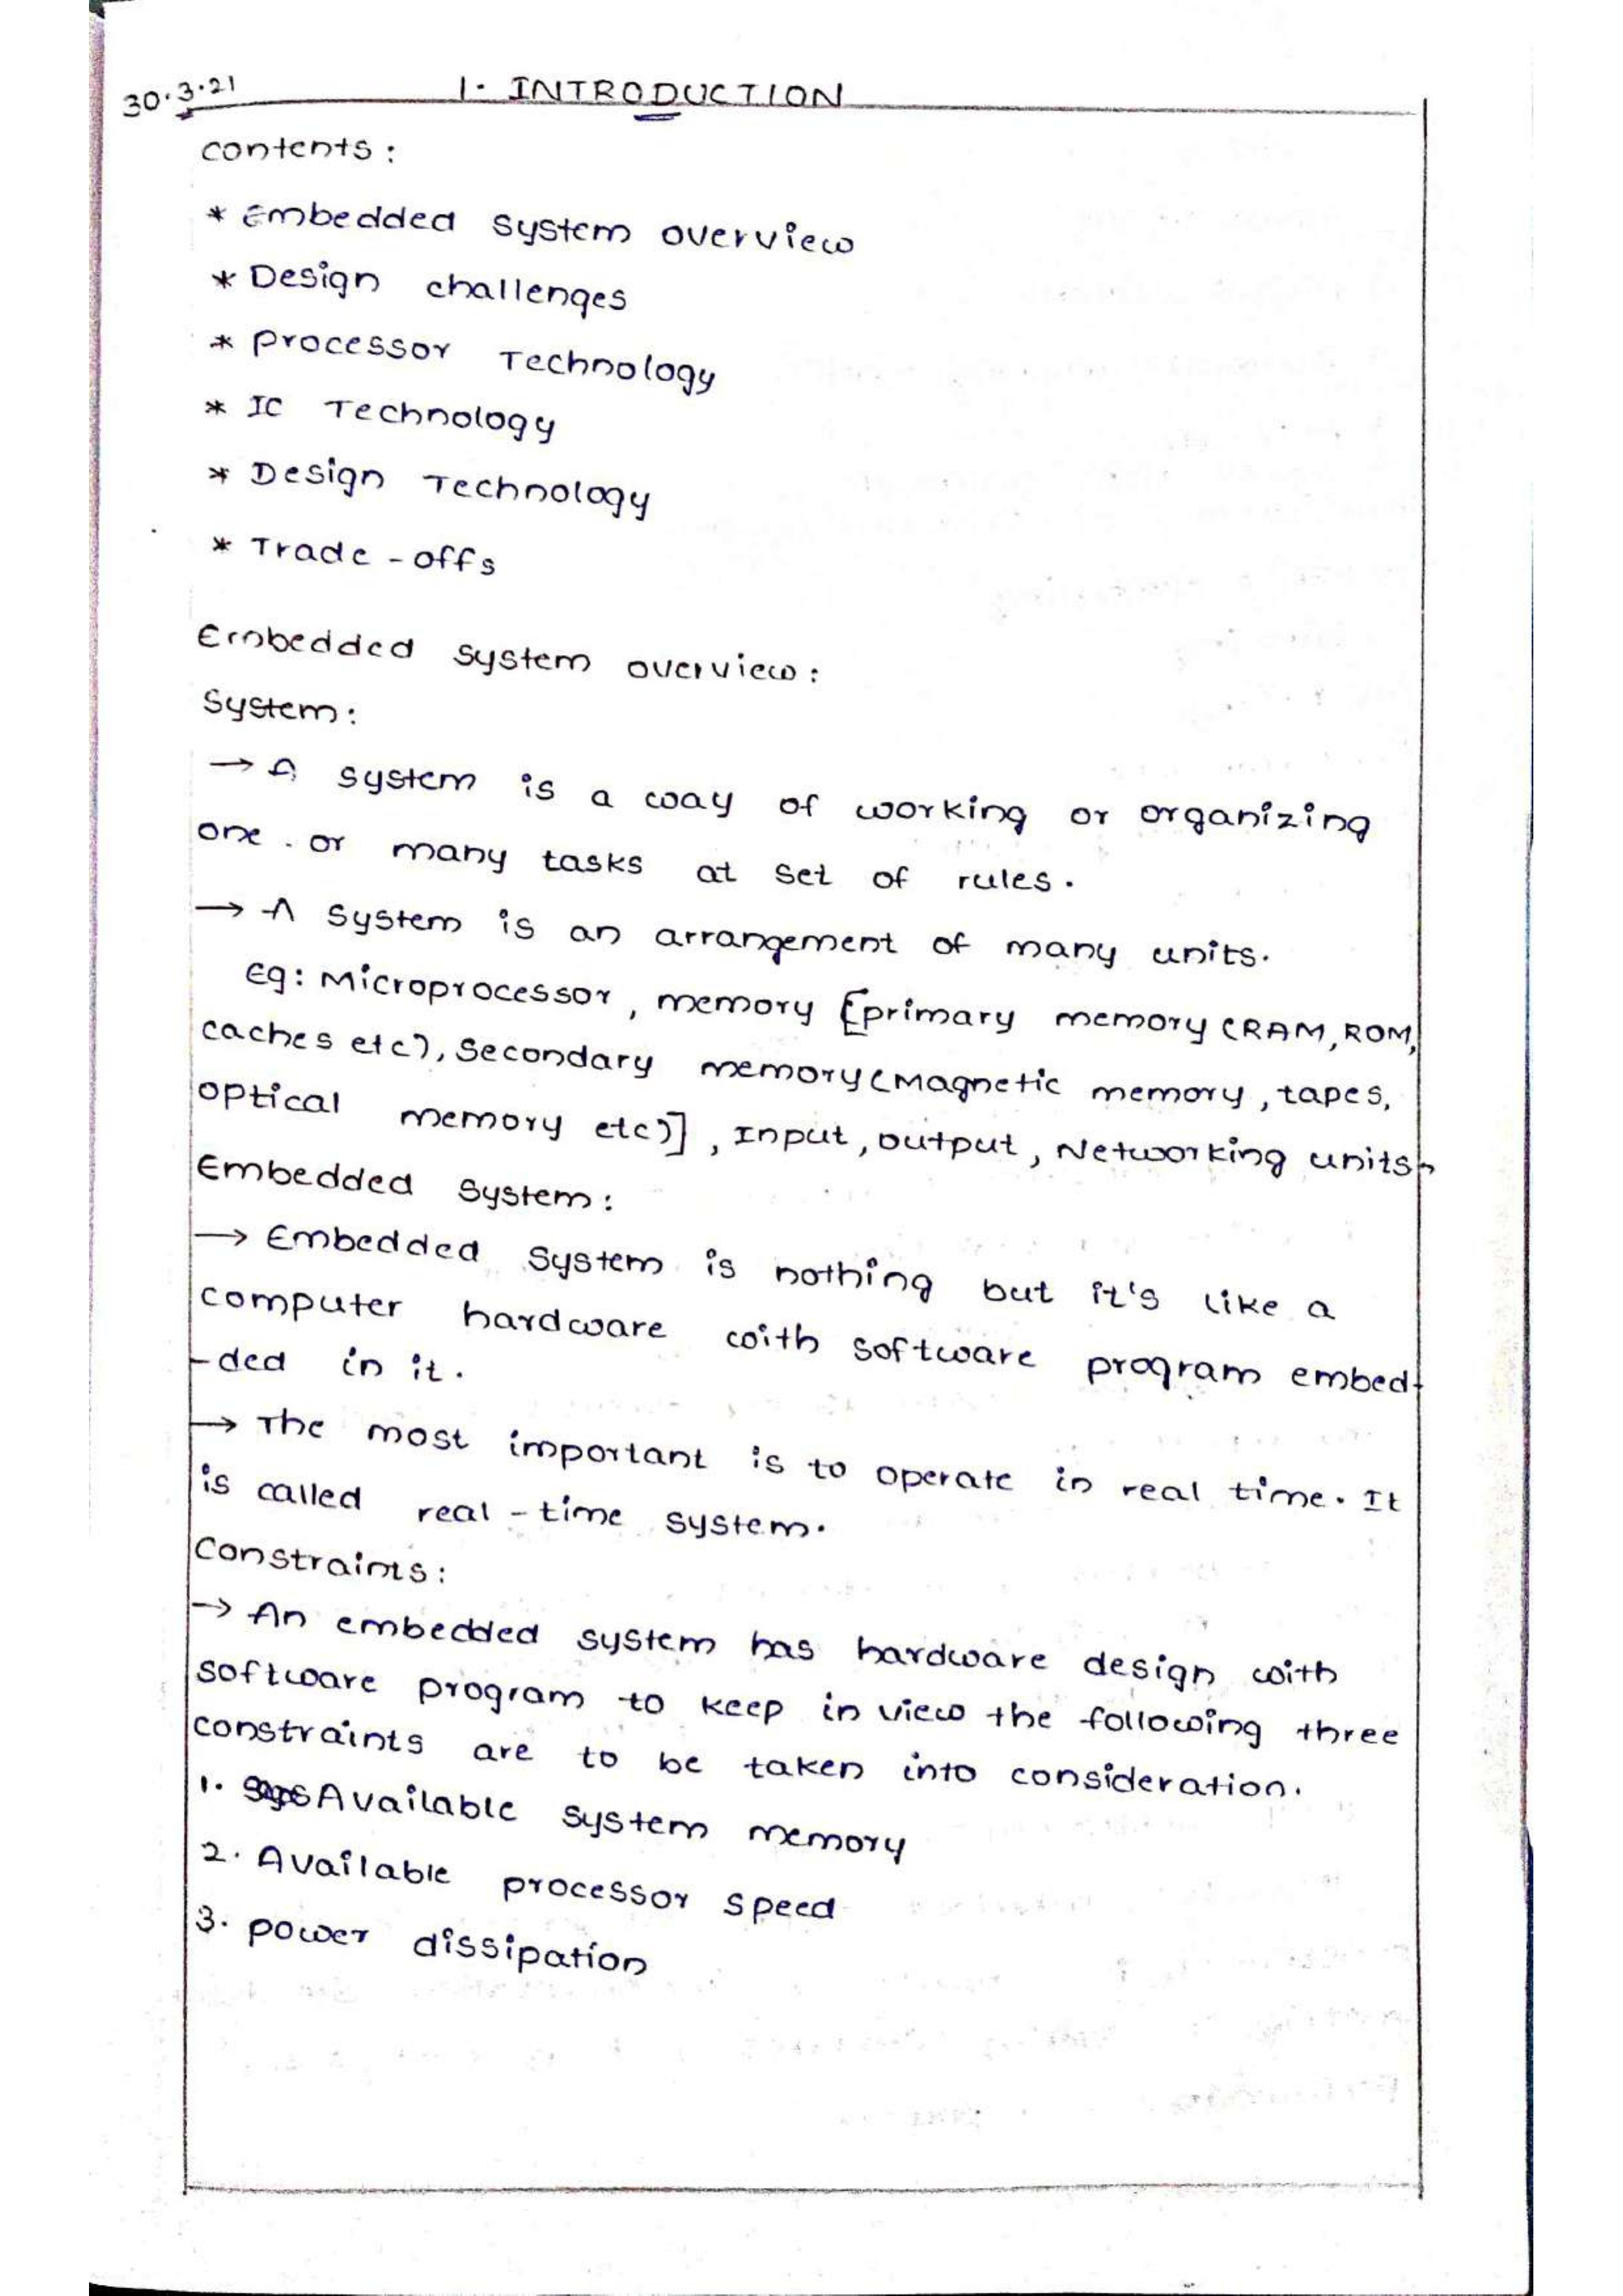 30.3.21
1. INTRODUCTION
contents:
* Embedded system overview
* Design challenges
* Processor Technology
* IC Technology
* Design Technology
* Trade-offs
Embedded system overview:
System:
→ A system is a way of working or organizing
one. or many tasks at set of rules.
→ A system is an arrangement of many units.
Eg: Microprocessor, memory [primary memory (RAM, ROM,
caches etc), Secondary memory (Magnetic memory, tapes,
optical memory etc)], Input, output, Networking units.
Embedded system:
→ Embedded system is nothing but it's like a
computer hardware with software program embed-
-ded in it.
→ The most important is to operate in real time. It
is called real-time system.
Constraints:
→ An embedded system has hardware design with
software program to keep in view the following three
constraints are to be taken into consideration.
1. Available system memory
2. Available processor speed
3. power dissipation